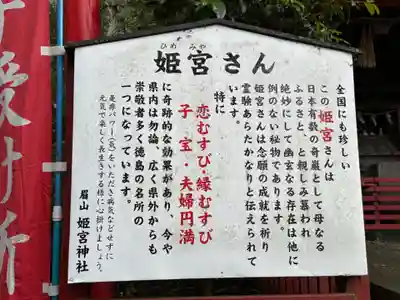 ひめみや
姫宮さん
全国にも珍しい
この姫宮さんは
日本有数の奇巌として母なる
ふるさと、と親しみ慕われ
絶妙にして幽玄なる存在は他に
例のない秘物であります。
姫宮さんは念願の成就を祈り
霊験あらたかなりと伝えられて
います。
特に
恋むすび・縁むすび
子宝・夫婦円満
に奇跡的な効果があり、今や
県内は勿論、広く県外からも
崇敬者多く徳島の名所の
一つになっています。
是非パワー(気)をいただき病気などせずに
元気で楽しく長生きする様に心掛けましょう。
眉山 姫宮神社
受け所